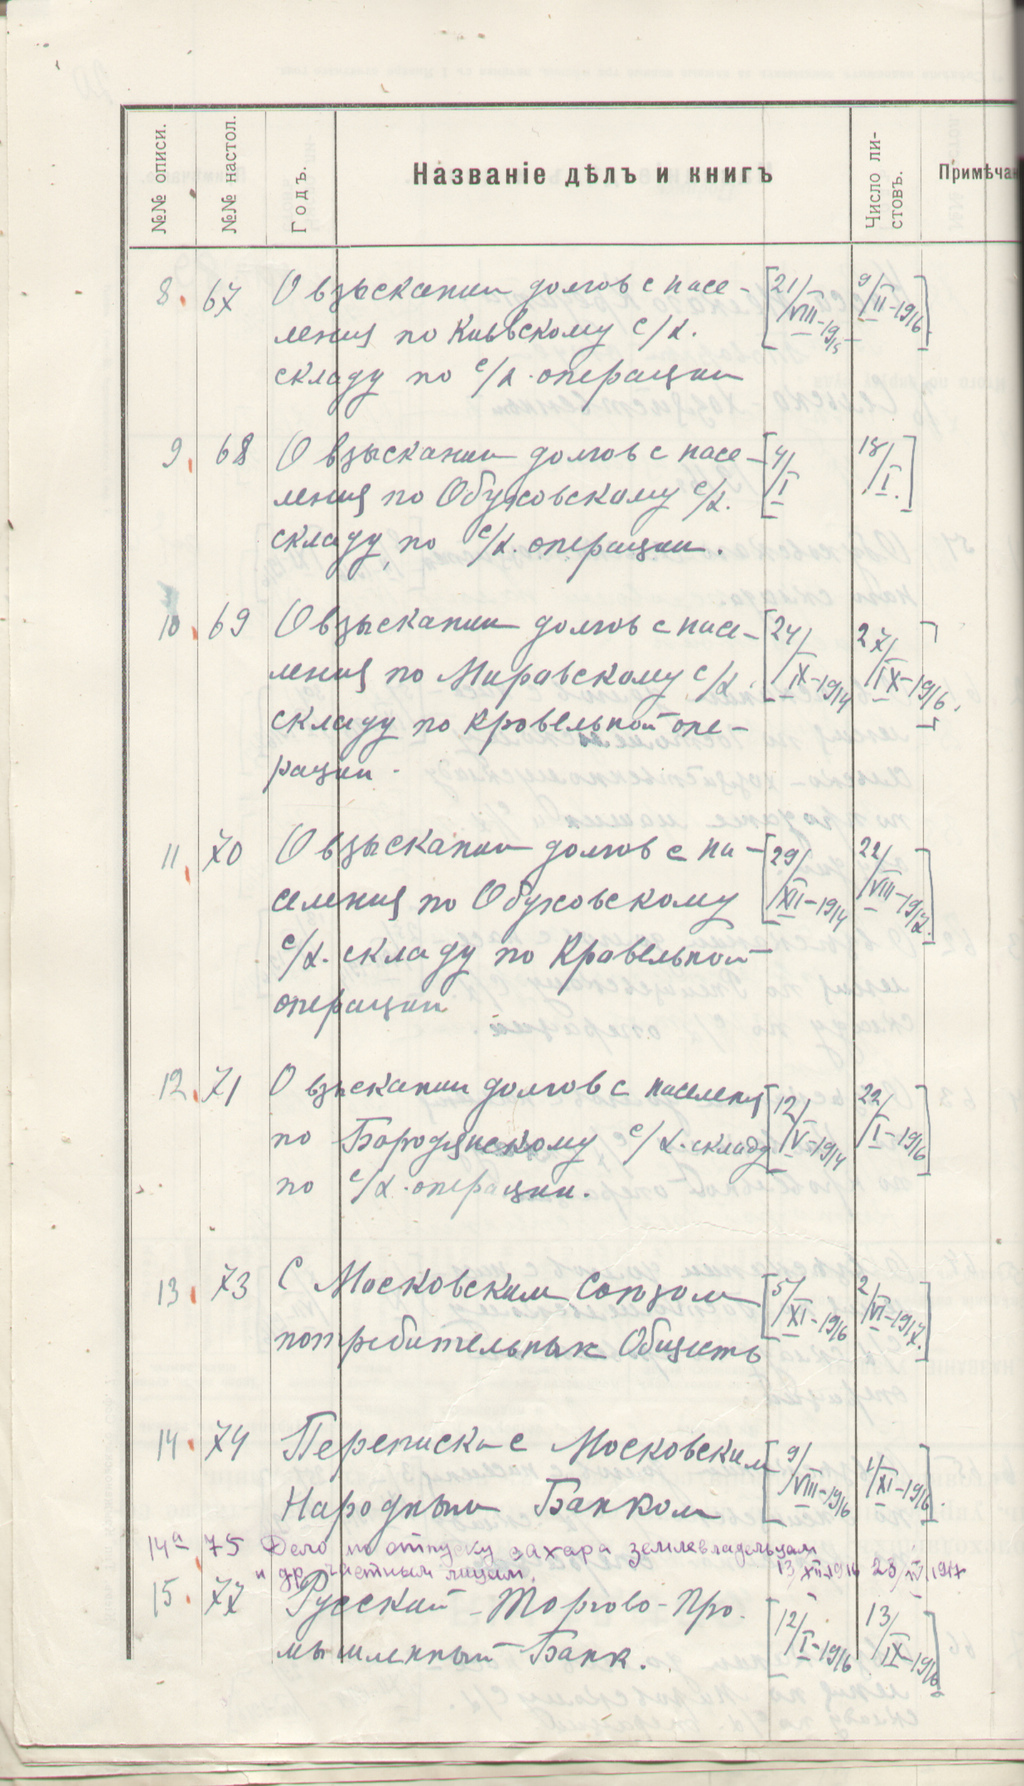 №№ описи.
№№ настол.
Годъ.
Названіе дѣлъ и книгъ
Число ли-
стовъ.
Примѣчан
8. 67 О взыскании долгов с насе- [21/VIII-1915 9/II-1916]
ления по Киевскому с/х.
складу по с/х. операции
9. 68 О взыскании долгов с насе- [4/I 18/I.]
ления по Обуховскому с/х.
складу, по с/х. операции.
10. 69 О взыскании долгов с насе- [24/IX-1914 27/IX-1916.]
ления по Макаровскому с/х.
складу по кровельной опе-
рации.
11. 70 О взыскании долгов с на- [29/XI-1914 22/VIII-1917.]
селения по Обуховскому
с/х. складу по Кровельной
операции
12. 71 О взыскании долгов с населения [12/V-1914 22/I-1916]
по Бородянскому с/х. складу
по с/х. операции.
13. 73 С Московским Союзом [5/XI-1916 2/VI-1917.]
потребительных Обществ
14. 74 Переписка с Московским [9/VIII-1916 1/XI-1916.]
Народным Банком
14а 75 Дело по отпуску сахара землевладельцам
и др. частным лицам. 13/XII.1916 23/IV.1917
15. 77 Русский-Торгово-Про- [12/I-1916 13/IX-1916]
мышленный Банк.